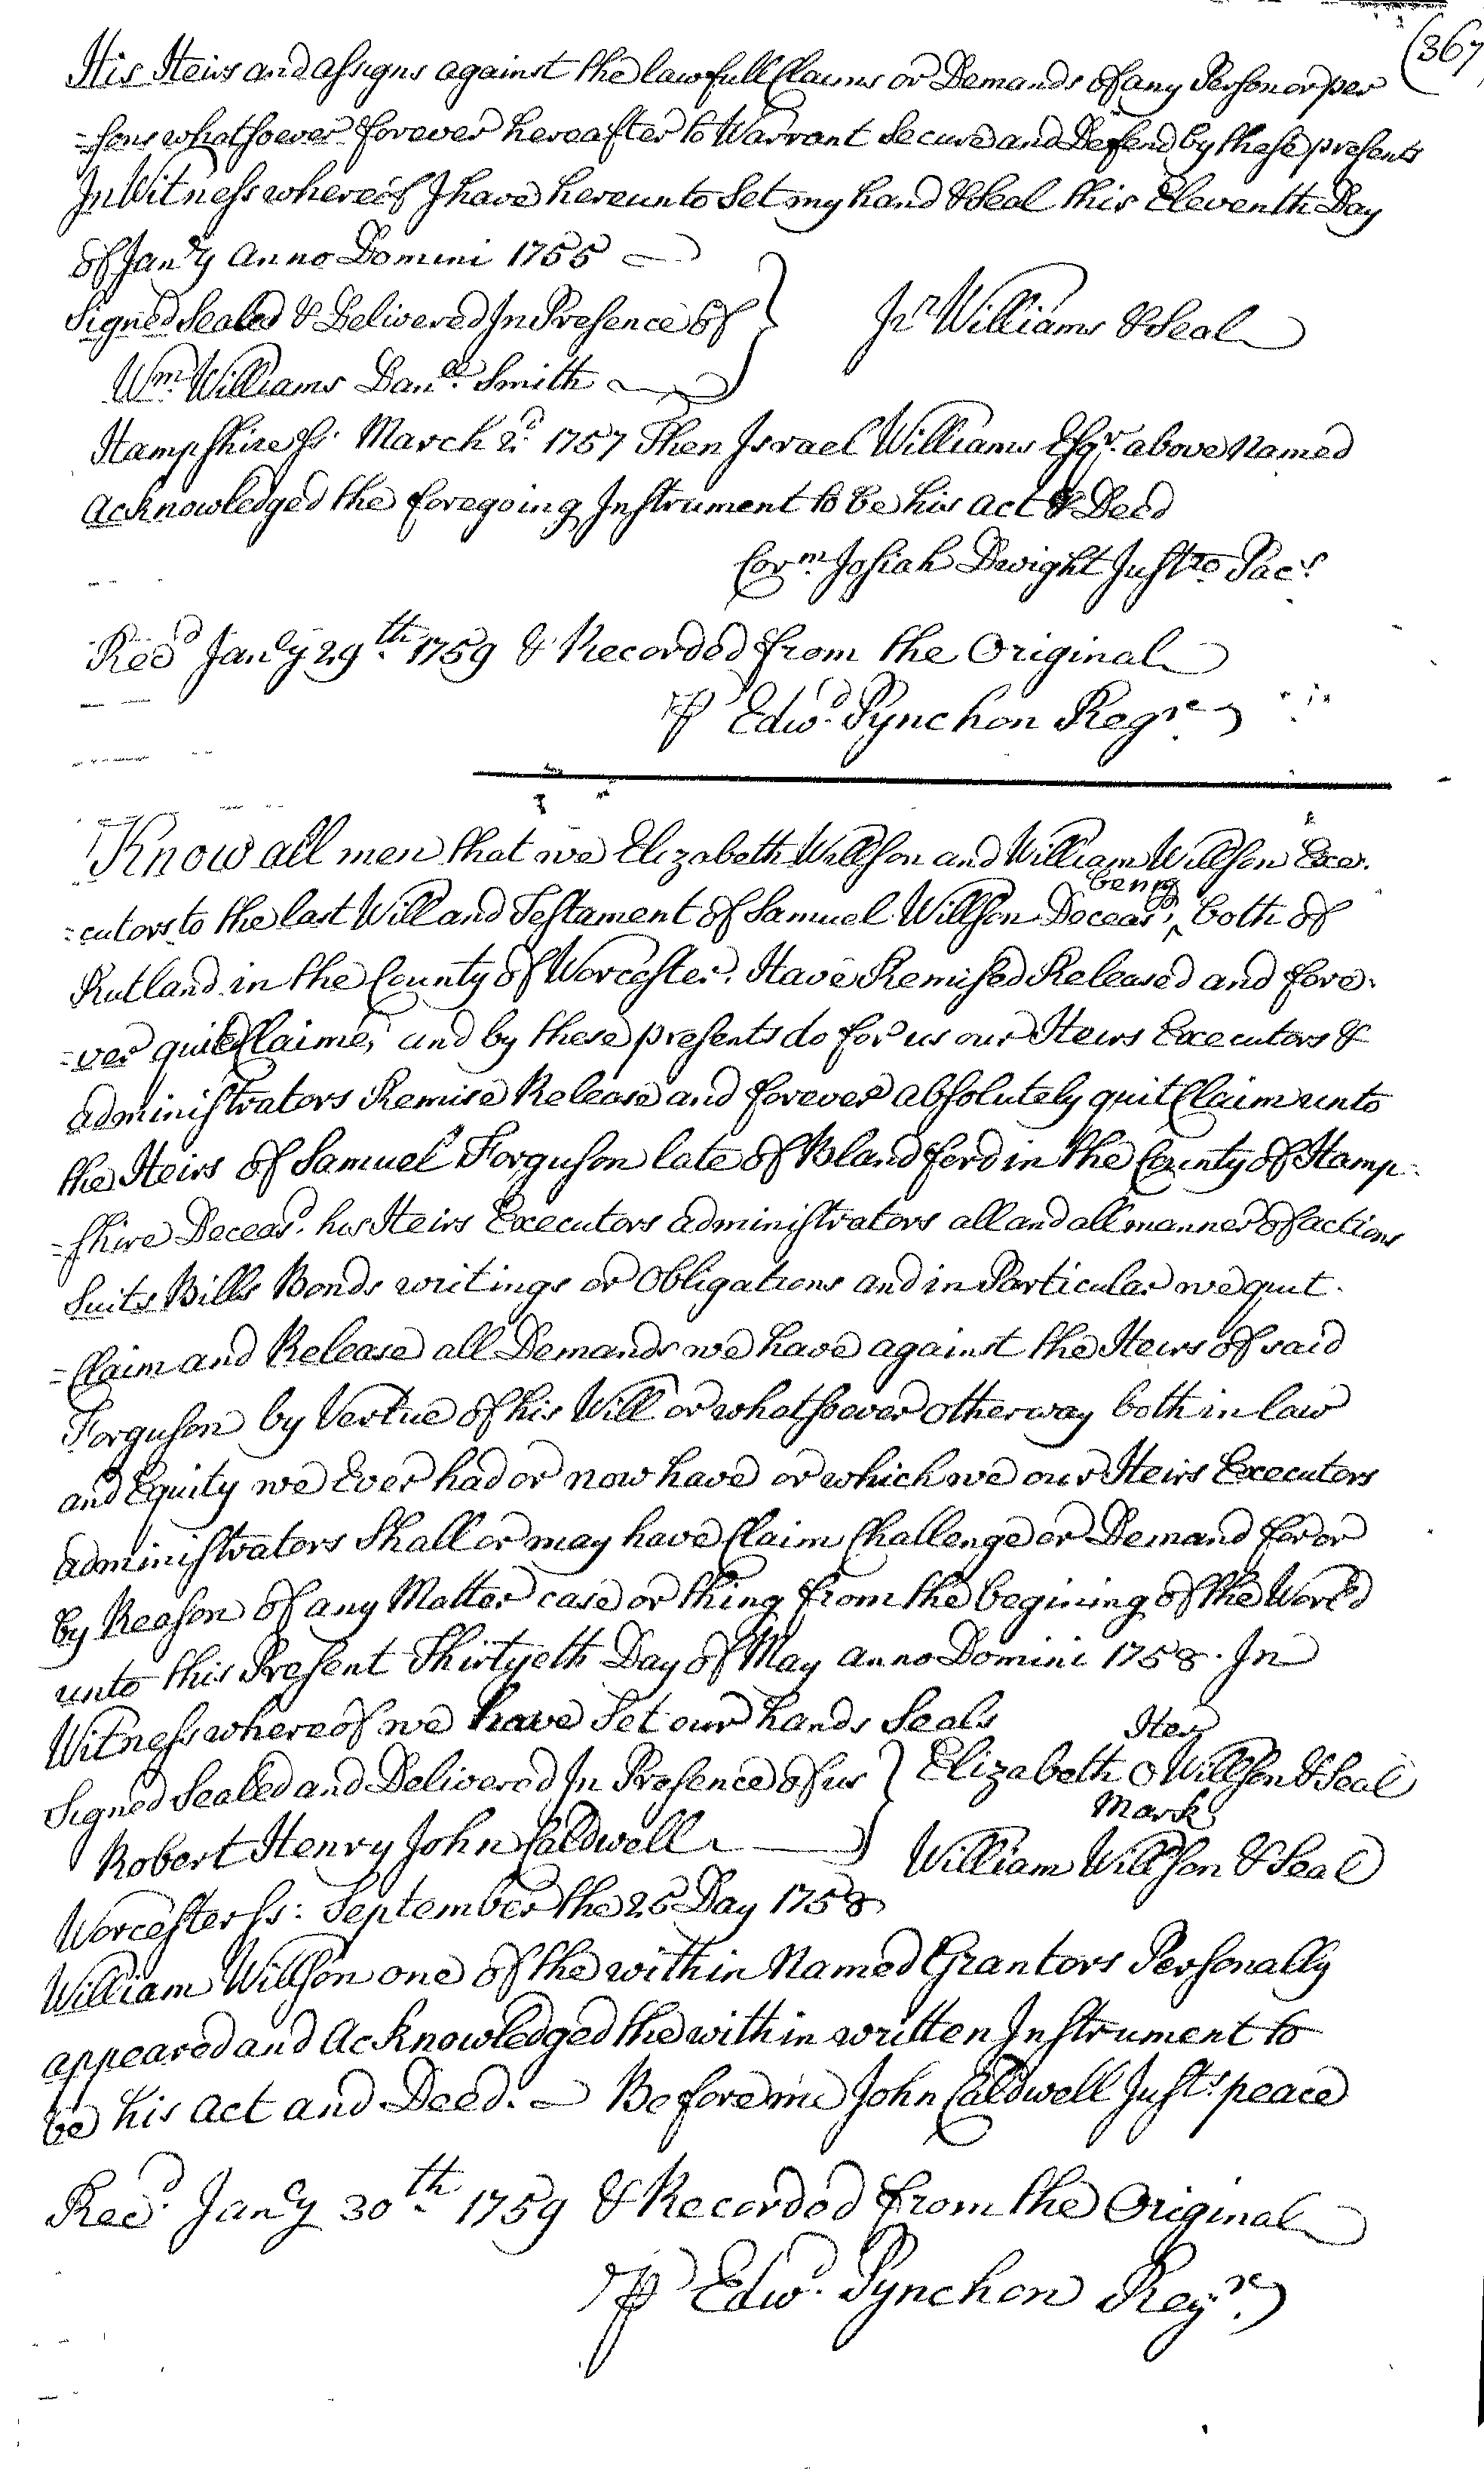 (367
His Heirs and assigns against the lawfull Claims or Demands of any Person or per
=sons whatsoever forever hereafter to Warrant Secure and Defend by these presents
In Witness whereof I have hereunto Set my hand & Seal this Eleventh Day
of Jan.ry Anno Domini 1755
Signed Sealed & Delivered In Presence of } Isr Williams & Seal
Wm. Williams Dan.ll Smith
Hampshire ss. March 2.d 1757 Then Israel Williams Esqr. above Named
Acknowledged the foregoing Instrument to be his act & Deed
Cor.m Josiah Dwight Just.ro Pac.s
Rec.d Jan.ry 29.th 1759 & Recorded from the Original
⅌ Edw.d Pynchon Reg.re
Know all men that we Elizabeth Willson and William Willson Exe.
=cutors to the last Will and Testament of Samuel Willson Deceas.d ^being both of
Rutland in the County of Worcester. Have Remised Released and fore.
=ver quit Claime, and by these presents do for us our Heirs Executors &
administrators Remise Release and forever absolutely quit Claim unto
the Heirs of Samuel Forguson late of Blandford in the County of Hamp=
=shire Deceas.d his Heirs Executors administrators all and all manner of actions
Suits Bills Bonds writings or Obligations and in Particular we quit.
=Claim and Release all Demands we have against the Heirs of said
Forguson by Vertue of his Will or whatsoever otherway both in law
and Equity we Ever had or now have or which we our Heirs Executors
administrators Shall or may have Claim Challenge or Demand for or
by Reason of any Matter case or thing from the begining of the World
unto this Present Thirtyeth Day of May anno Domini 1758. In
Witness whereof we have Set our hands Seals
Signed Sealed and Delivered In Presence of us } Elizabeth her O Mark Willson & Seal
Robert Henry John Caldwell William Willson & Seal
Worcester ss: September the 25 Day 1758
William Willson one of the within Named Grantors Personally
appeared and Acknowledged the within written Instrument to
be his act and Deed. Before me John Caldwell Just.s peace
Rec.d Jan.ry 30.th 1759 & Recorded from the Original
⅌ Edw.d Pynchon Reg.re